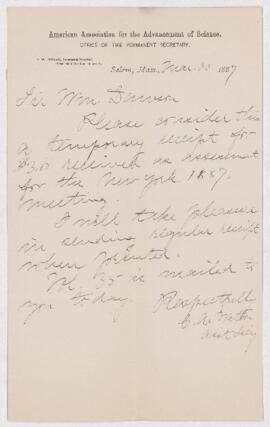 American Association for the Advancement of Science.
OFFICE OF THE PERMANENT SECRETARY.
Salem, Mass., Mar. 30 1887
Sir Wm Dawson
Please consider this
a temporary receipt for
$3.0 received as assessment
for the New York 1887.
meeting.
I will take pleasure
in sending regular receipt
when printed.
Vol. 35 is mailed to
you today.
Respectfull